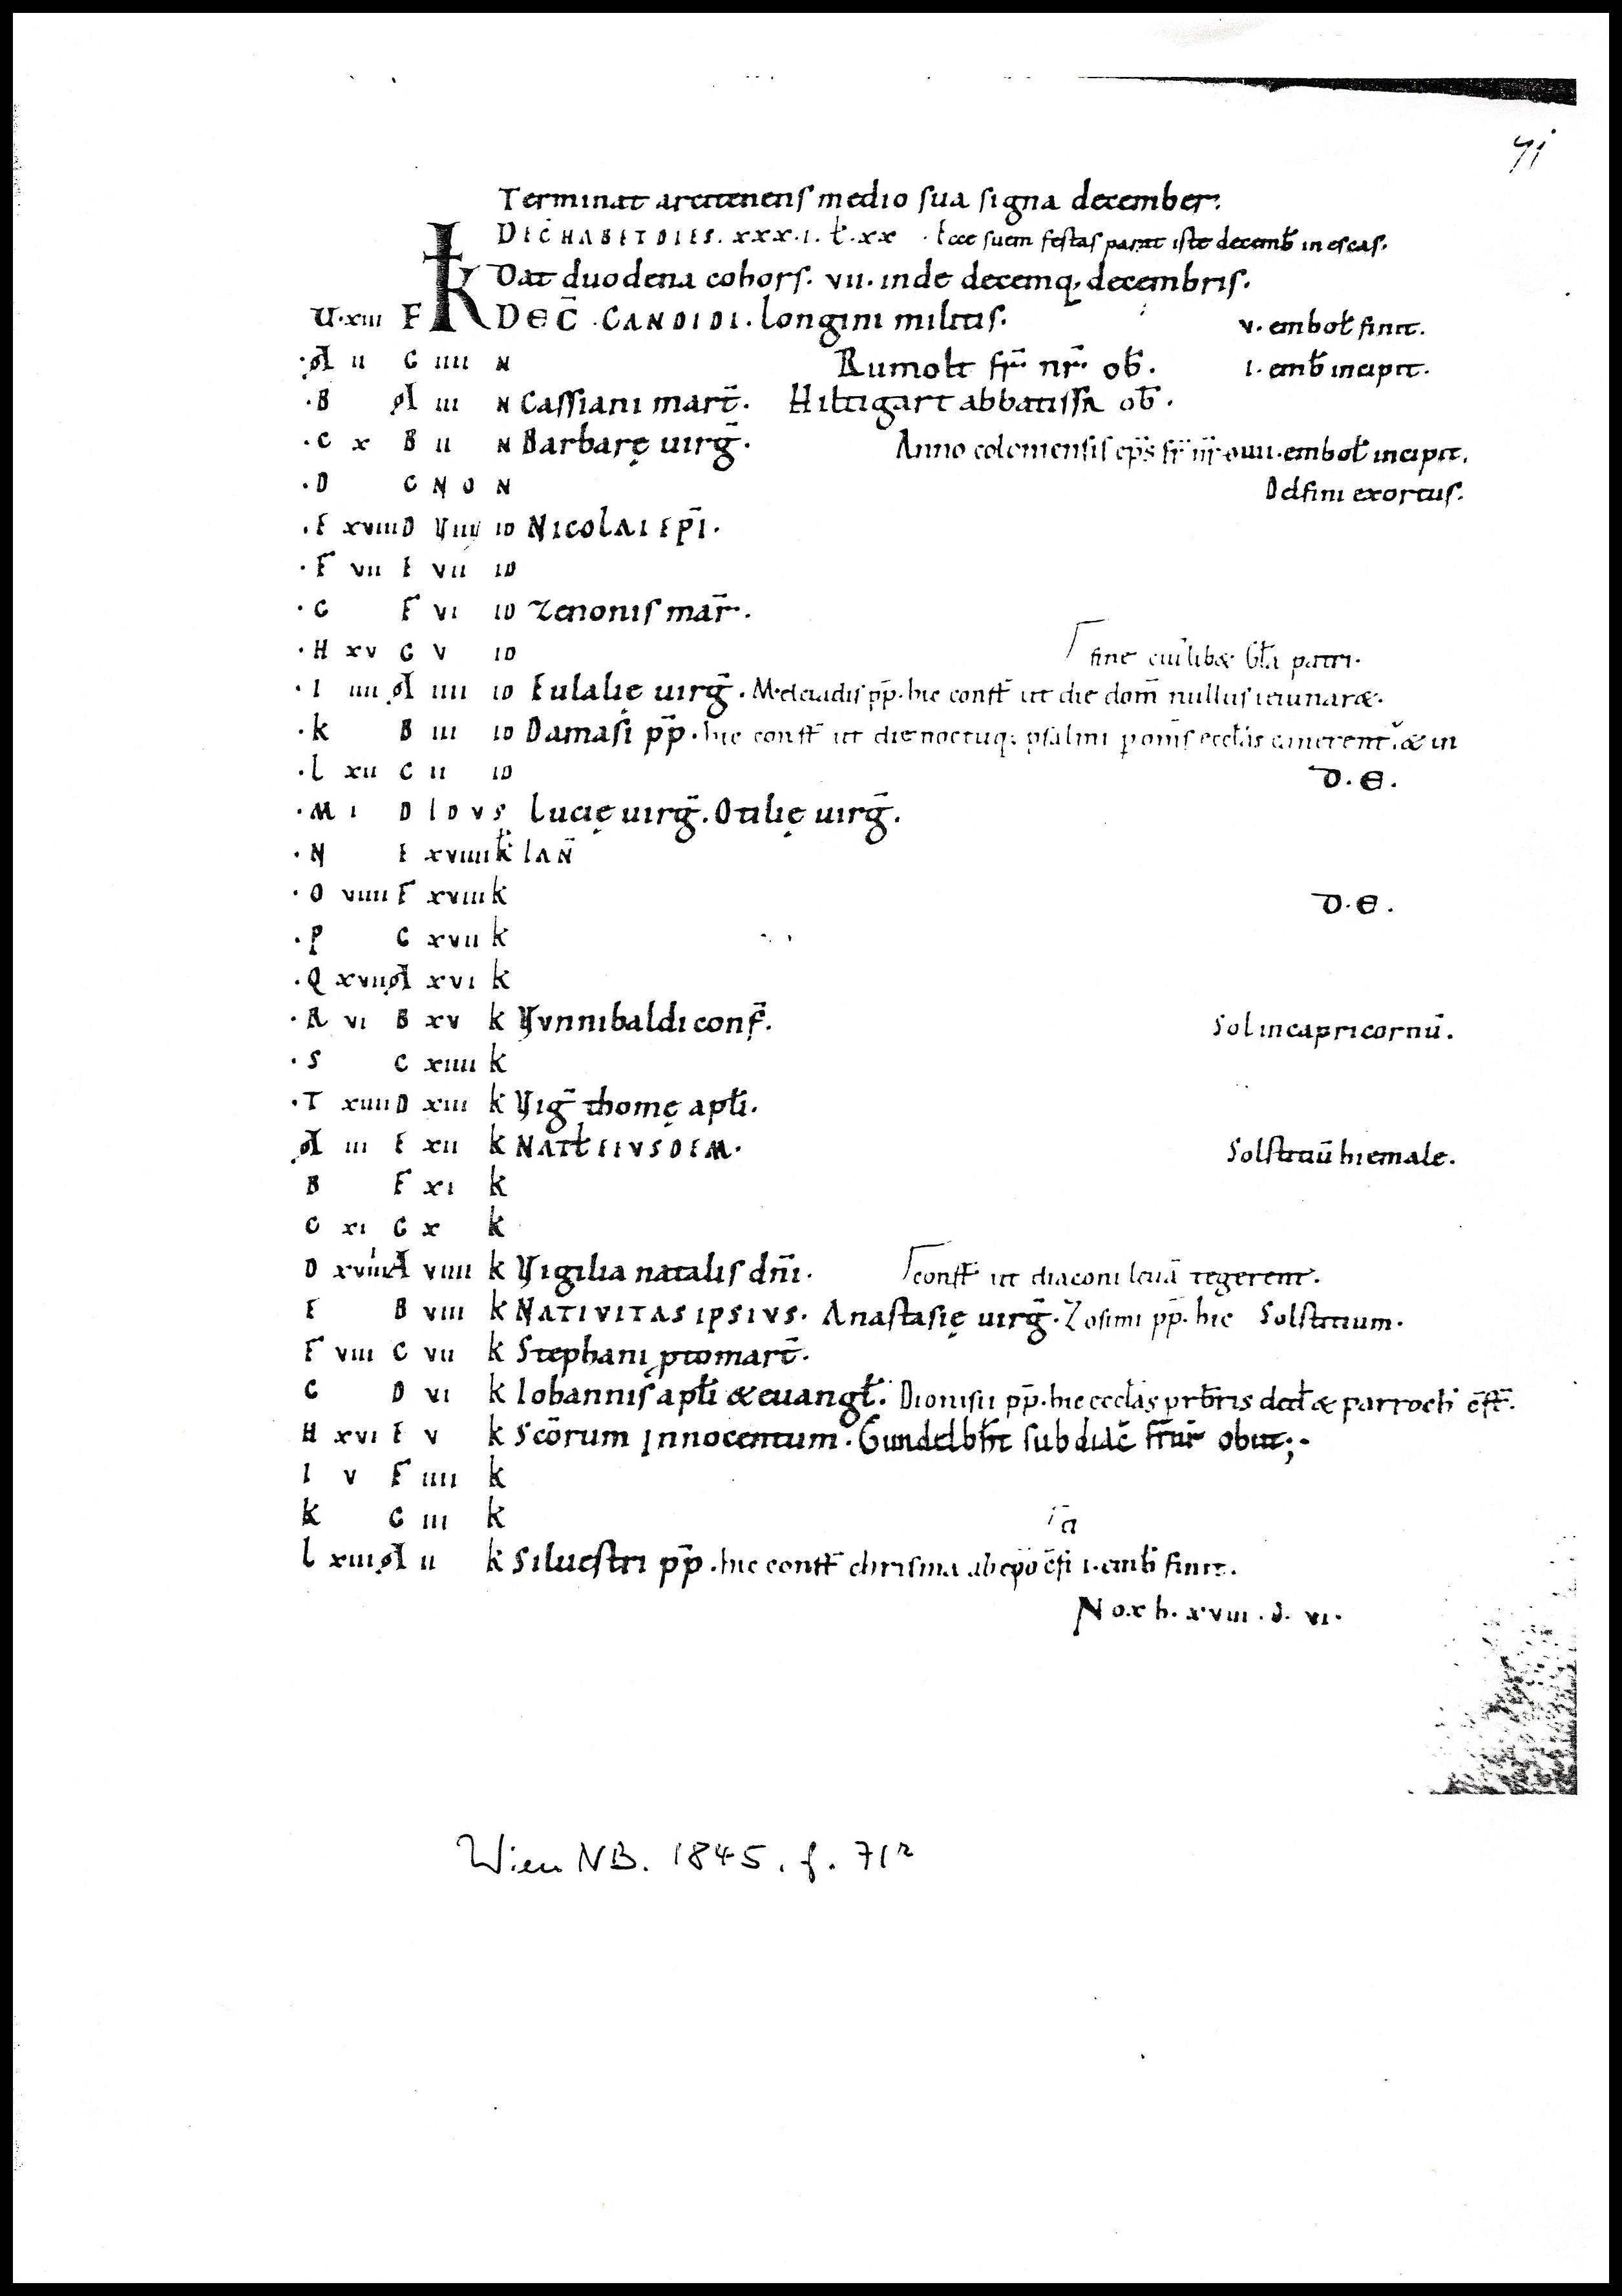 71
Terminat arcitenens medio sua signa december.
DEC̄ HABET DIES. xxx.i. ł. xx. Ecce suem festas parat iste decemb̄ in escas.
Dat duodena cohors. vii. inde decemq; decembris.
U. xiii F K DEC̄. CANDIDI. Longini militis. v. embol̄ finit.
A ii G iiii N Rumolt fr̄ nr̄ ob̄. i. emb̄ incipit.
B A iii N Cassiani mart̄. Hiltigart abbatissa ob̄.
C x B ii N Barbarę uirḡ. Anno coloniensis ep̄s fr̄ nr̄ embol̄ incipit.
D C NON Delfini exortus.
E xviii D VIII ID NICOLAI EP̄I.
F vii E vii ID
G F vi ID Zenonis mar̄.
H xv G v ID fine cuilibet Gl̄a patri.
I iiii A iiii ID Eulalię uirḡ. Melciadis pp̄. hic const̄ ut die dom̄ nullus ieiunaret.
K B iii ID Damasi pp̄. hic const̄ ut die noctuq; psalmi p om̄s eccl̄as canerent̄. & in
L xii C ii ID D.E.
M i D IDVS Lucię uirḡ. Otilię uirḡ.
N E xviiii kl̄ IAN̄
O viiii F xviii k D.E.
P G xvii k
Q xvii A xvi k
R vi B xv k Vvnnibaldi conf̄. Sol in capricornū.
S C xiiii k
T xiiii D xiii k Viḡ thomę apl̄i.
A iii E xii k NATL̄ EIVSDEM. Solstitiū hiemale.
B F xi k
C xi G x k
D xviiii A viiii k Vigilia natalis dn̄i. const̄ ut diaconi leuā tegerent.
E B viii k NATIVITAS IPSIVS. Anastasię uirḡ. Zosimi pp̄. hic Solstitium.
F viii C vii k Stephani ptomart̄.
G D vi k Iohannis apl̄i & euangl̄. Dionisii pp̄. hic eccl̄as prb̄ris ded̄ & parroch̄ c̄st̄.
H xvi E v k Scōrum Innocentum. Gundelbh̄t subdiac̄ fr̄ nr̄ obiit;.
I v F iiii k
K G iii k
L xiii A ii k Siluestri pp̄. hic const̄ chrisma ab ep̄o c̄fi i. emb̄ finit.
Nox h. xviii. d. vi.
Wien NB. 1845. f. 71r